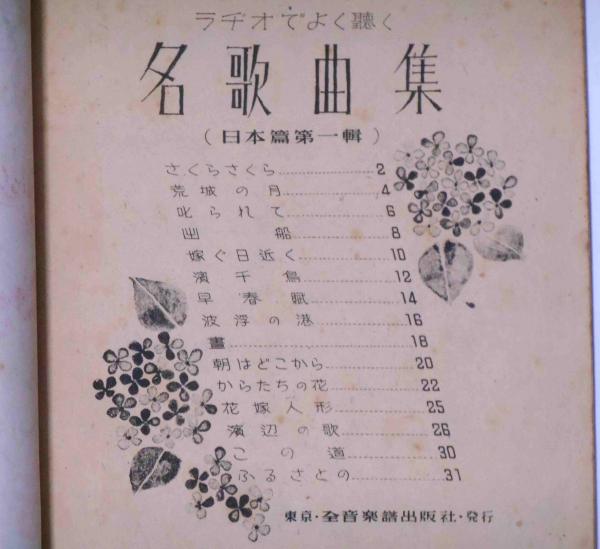 ラヂオでよく聴く
名歌曲集
（日本篇第一輯）
さくらさくら……………2
荒城の月……………4
叱られて……………6
出船……………8
嫁ぐ日近く……………10
濱千鳥……………12
早春賦……………14
波浮の港……………16
晝……………18
朝はどこから……………20
からたちの花……………22
花嫁人形……………25
濱辺の歌……………26
この道……………30
ふるさとの……………31
東京・全音楽譜出版社・発行